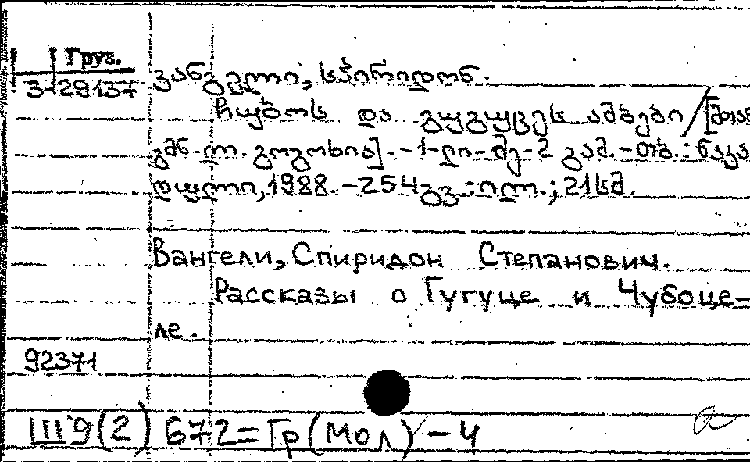 Груз.
3-129137
ვანგელი, სპირიდონ.
ჩუბოს და გუგუცეს ამბები/[მთარ
გმნ. ლ. გოგოხია]. -1-ლი-მე-2 გამ. -თბ.: ნაკა-
დული, 1988. -254გვ.: ილ.; 21სმ.
Вангели, Спиридон Степанович.
Рассказы о Гугуце и Чубоце-
ле.
92371
III9(2) 672=Гр(Мол) - 4